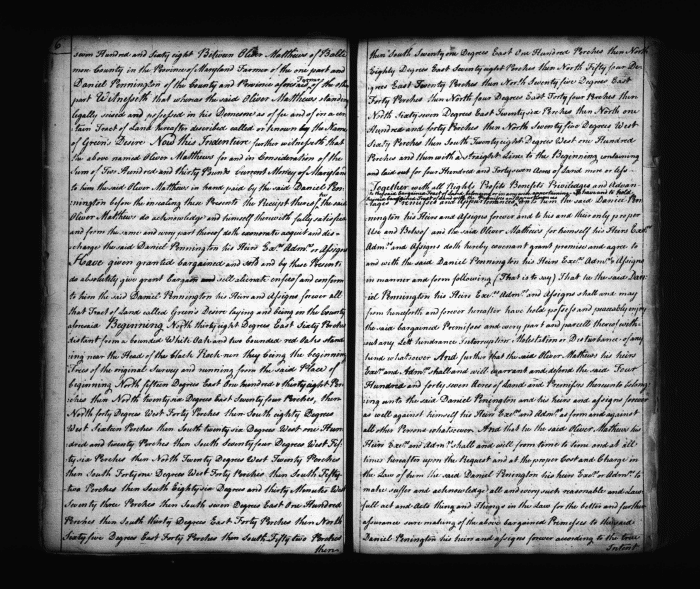 6
seven Hundred and Sixty eight Between Oliver Matthews of Balti
more County in the Province of Maryland Farmer of the one part and
Farmer
Daniel Pennington of the County and Province aforesaid of the other
part Witnesseth that whereas the said Oliver Matthews standing
legally seized and possessed in his Demesne as of fee and of in a cer
tain Tract of Land hereafter described called or known by the Name
of Green's Desire Now this Indenture further witnesseth that
the above named Oliver Matthews for and in Consideration of the
Sum of Two Hundred and thirty Pounds Current Money of Maryland
to him the said Oliver Matthews in hand paid by the said Daniel Pen
nington before the insealing these Presents the Receipt thereof the said
Oliver Matthews do acknowledge and himself therewith fully satisfied
and form the same and every part thereof doth exonerate acquit and dis=
charge the said Daniel Pennington his Heirs Exrs. Admrs. or Assigns
Have given granted bargained and sold and by these Presents
do absolutely give grant bargain and sell alienate enfeof and confirm
to him the said Daniel Pennington his Heirs and Assigns forever all
that Tract of Land called Green's Desire laying and being on the County
aforesaid Beginning North thirty eight Degrees East Sixty Perches
distant from a bounded White Oak and two bounded red Oaks stand
ing near the Head of the black Rock run they being the beginning
Trees of the original Survey and running from the said Place of
beginning North fifteen Degrees East one hundred & thirty eight Per
ches then North twenty six Degrees East Twenty Perches, then
North forty Degrees West Forty Perches then South eighty Degrees
West Sixteen Perches then South twenty six Degrees West one Hun
dred and twenty Perches then South Seventy four Degrees West Fif
ty six Perches then North Twenty Degrees West Twenty Perches
then South Forty one Degrees West Forty Perches then South Fifty=
two Perches then South Eighty six Degrees and thirty Minutes West
Seventy three Perches then South seven Degrees East One Hundred
Perches then South thirty Degrees East Forty Perches then North
Sixty five Degrees East Forty Perches then South Fifty two Perches
then
then South Twenty one Degrees East One Hundred Perches then North
Eighty Degrees East Seventy eight Perches then North Fifty four De
grees East Twenty Perches then North Seventy five Degrees East
Forty Perches then North four Degrees East Forty four Perches then
North Sixty seven Degrees East Twenty six Perches then North one
Hundred and forty Perches then North Twenty five Degrees West
Sixty Perches then South Twenty eight Degrees West one Hundred
Perches and then with a straight Line to the Beginning containing
and laid out for four Hundred and Forty seven Acres of Land more or less
Together with all Rights Profits Benefits Priviledges and Advan
tages and Appurtenances the said Daniel Pen
nington his Heirs and Assigns forever and to his and their only proper
Use and Behoof and the said Oliver Matthews for himself his Heirs Exrs.
Admrs. and Assigns doth hereby covenant grant promise and agree to
and with the said Daniel Pennington his Heirs Exrs. Admrs. & Assigns
in manner and form following (That is to say) That he the said Dan
iel Pennington his Heirs Exrs. Admrs. and Assigns shall and may
from henceforth and forever hereafter have hold possess and peaceably enjoy
the said bargained Premises and every part and parcell thereof with=
out any Let hindrance Interruption Molestation or Disturbance of any
kind whatsoever And further that the said Oliver Matthews his heirs
Exrs. and Admrs. shall and will warrant and defend the said Four
Hundred and forty seven Acres of Land and Premises thereunto belong
ing unto the said Daniel Pennington and his heirs and assigns forever
as well against himself his Heirs Exrs. and Admrs. as form and against
all other Persons whatsoever And that he the said Oliver Mathews his
Heirs Exrs. and Admrs. shall and will from time to time and at all
times hereafter upon the Request and at the proper Cost and Charge in
the Law of him the said Daniel Pennington his heirs Exrs. or Admrs. to
make suffer and acknowledge all and every such reasonable and Law
full act and Acts thing and Things in the Law for the better and further
assurance sure making of the above bargained Premises to the said
Daniel Pennington his heirs and assigns forever according to the true
Intent